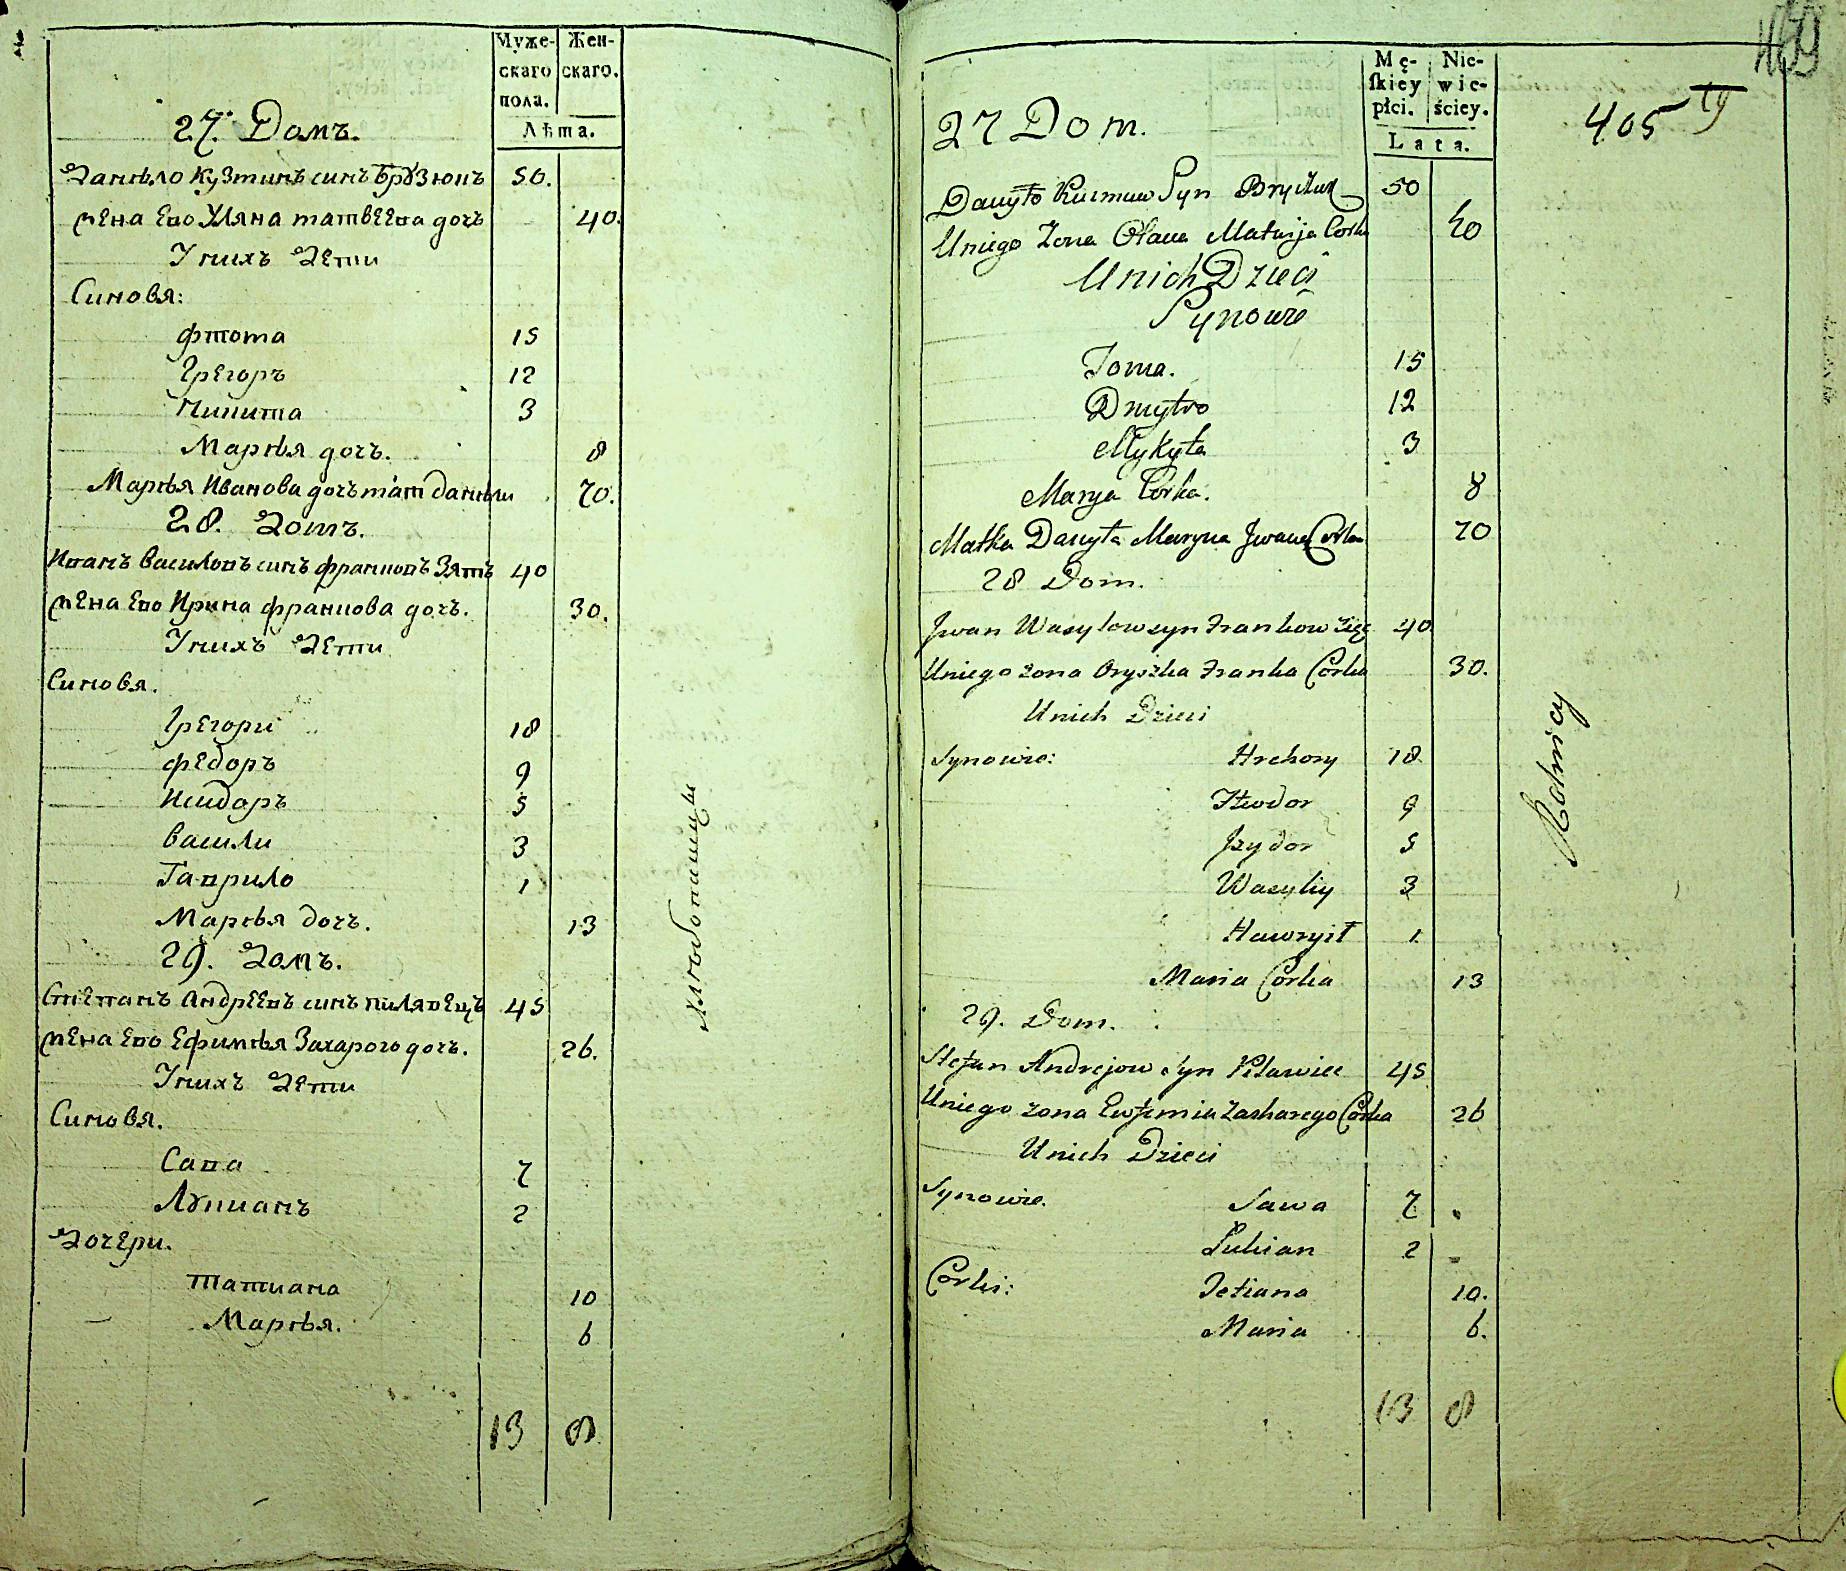 Муже-
скаго
пола.
Жен-
скаго.
Лѣта.
27. Домъ.
Данѣло Кузминъ синъ Брузюкъ 50.
жена Ево Уляна матвЕЕва дочъ 40.
У нихъ ДЕти
Синовя:
фтома 15
ГрЕгоръ 12
Микита 3
Марѣя дочъ. 8
Марѣя Иванова дочъ мат данѣли 70.
28. Домъ.
Иванъ василовъ синъ франковъ Зять 40
жЕна Ево Ирина францова дочъ. 30.
У нихъ ДЕти
Синовя.
ГрЕгори 18
фЕдоръ 9
Исидоръ 5
васили 3
Гаврило 1
Марѣя дочъ. 13
29. Домъ.
СтЕпанъ АндрЕЕвъ синъ пилявЕцъ 45
жЕна Ево Ефимѣя Захарого дочъ. 26.
У нихъ ДЕти
Синовя.
Сава 7
Лукианъ 2
ДочЕри.
Татиана 10
Марѣя. 6
13 8
Хлѣбопашцы
Mę-
skiey
płci.
Nie-
wie-
ściey.
Lata.
405
27 Dom.
Danyło Kuzmin Syn 50
Uniego Zona Olana Matwija Corka 40
Unich Dzieci
Synowie
Toma. 15
Dmytro 12
Mykyta 3
Marya Corka. 8
Matka Danyła Maryna Jwana Corka 70
28 Dom.
Jwan Wasylow syn Frankow Zięc 40
Uniego zona Oryszka Franka Corka 30.
Unich Dzieci
Synowie: Hrehory 18.
Fteodor 9
Jzydor 5
Wasyliy 3
Hawryił 1.
Maria Corka 13
29. Dom.
Stefan Andrejow Syn Pilawiec 45
Uniego zona Ewfemia Zacharego Corka 26
Unich Dzieci
Synowie. Sawa 7
Lukian 2
Corki: Tetiana 10.
Maria 6.
13 8
Rolnicy